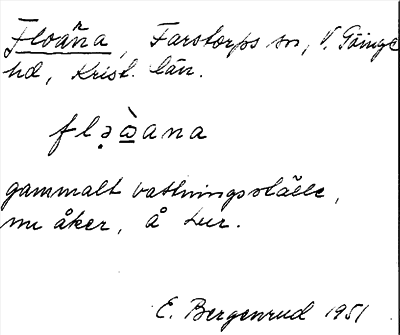 Floarna, Farstorps sn, V. Göinge
hd, Krist. län.
flə̣ɷ̀ana
gammalt vattningsställe,
nu åker, å Lur.
E. Bergenrud 1951